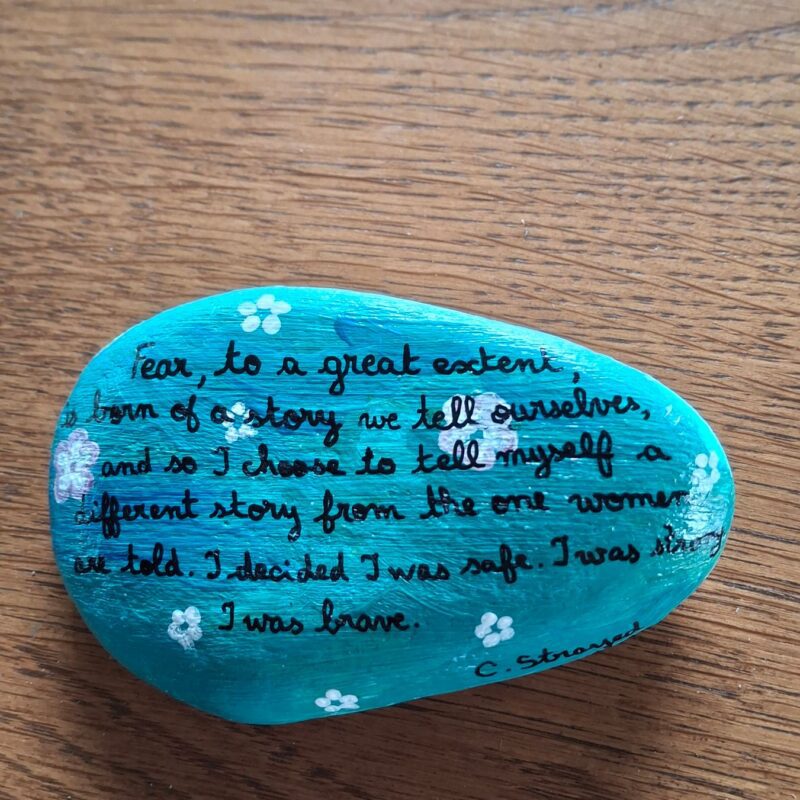 Fear, to a great extent,
is born of a story we tell ourselves,
and so I choose to tell myself a
different story from the one women
are told. I decided I was safe. I was strong
I was brave.
C. Strayed